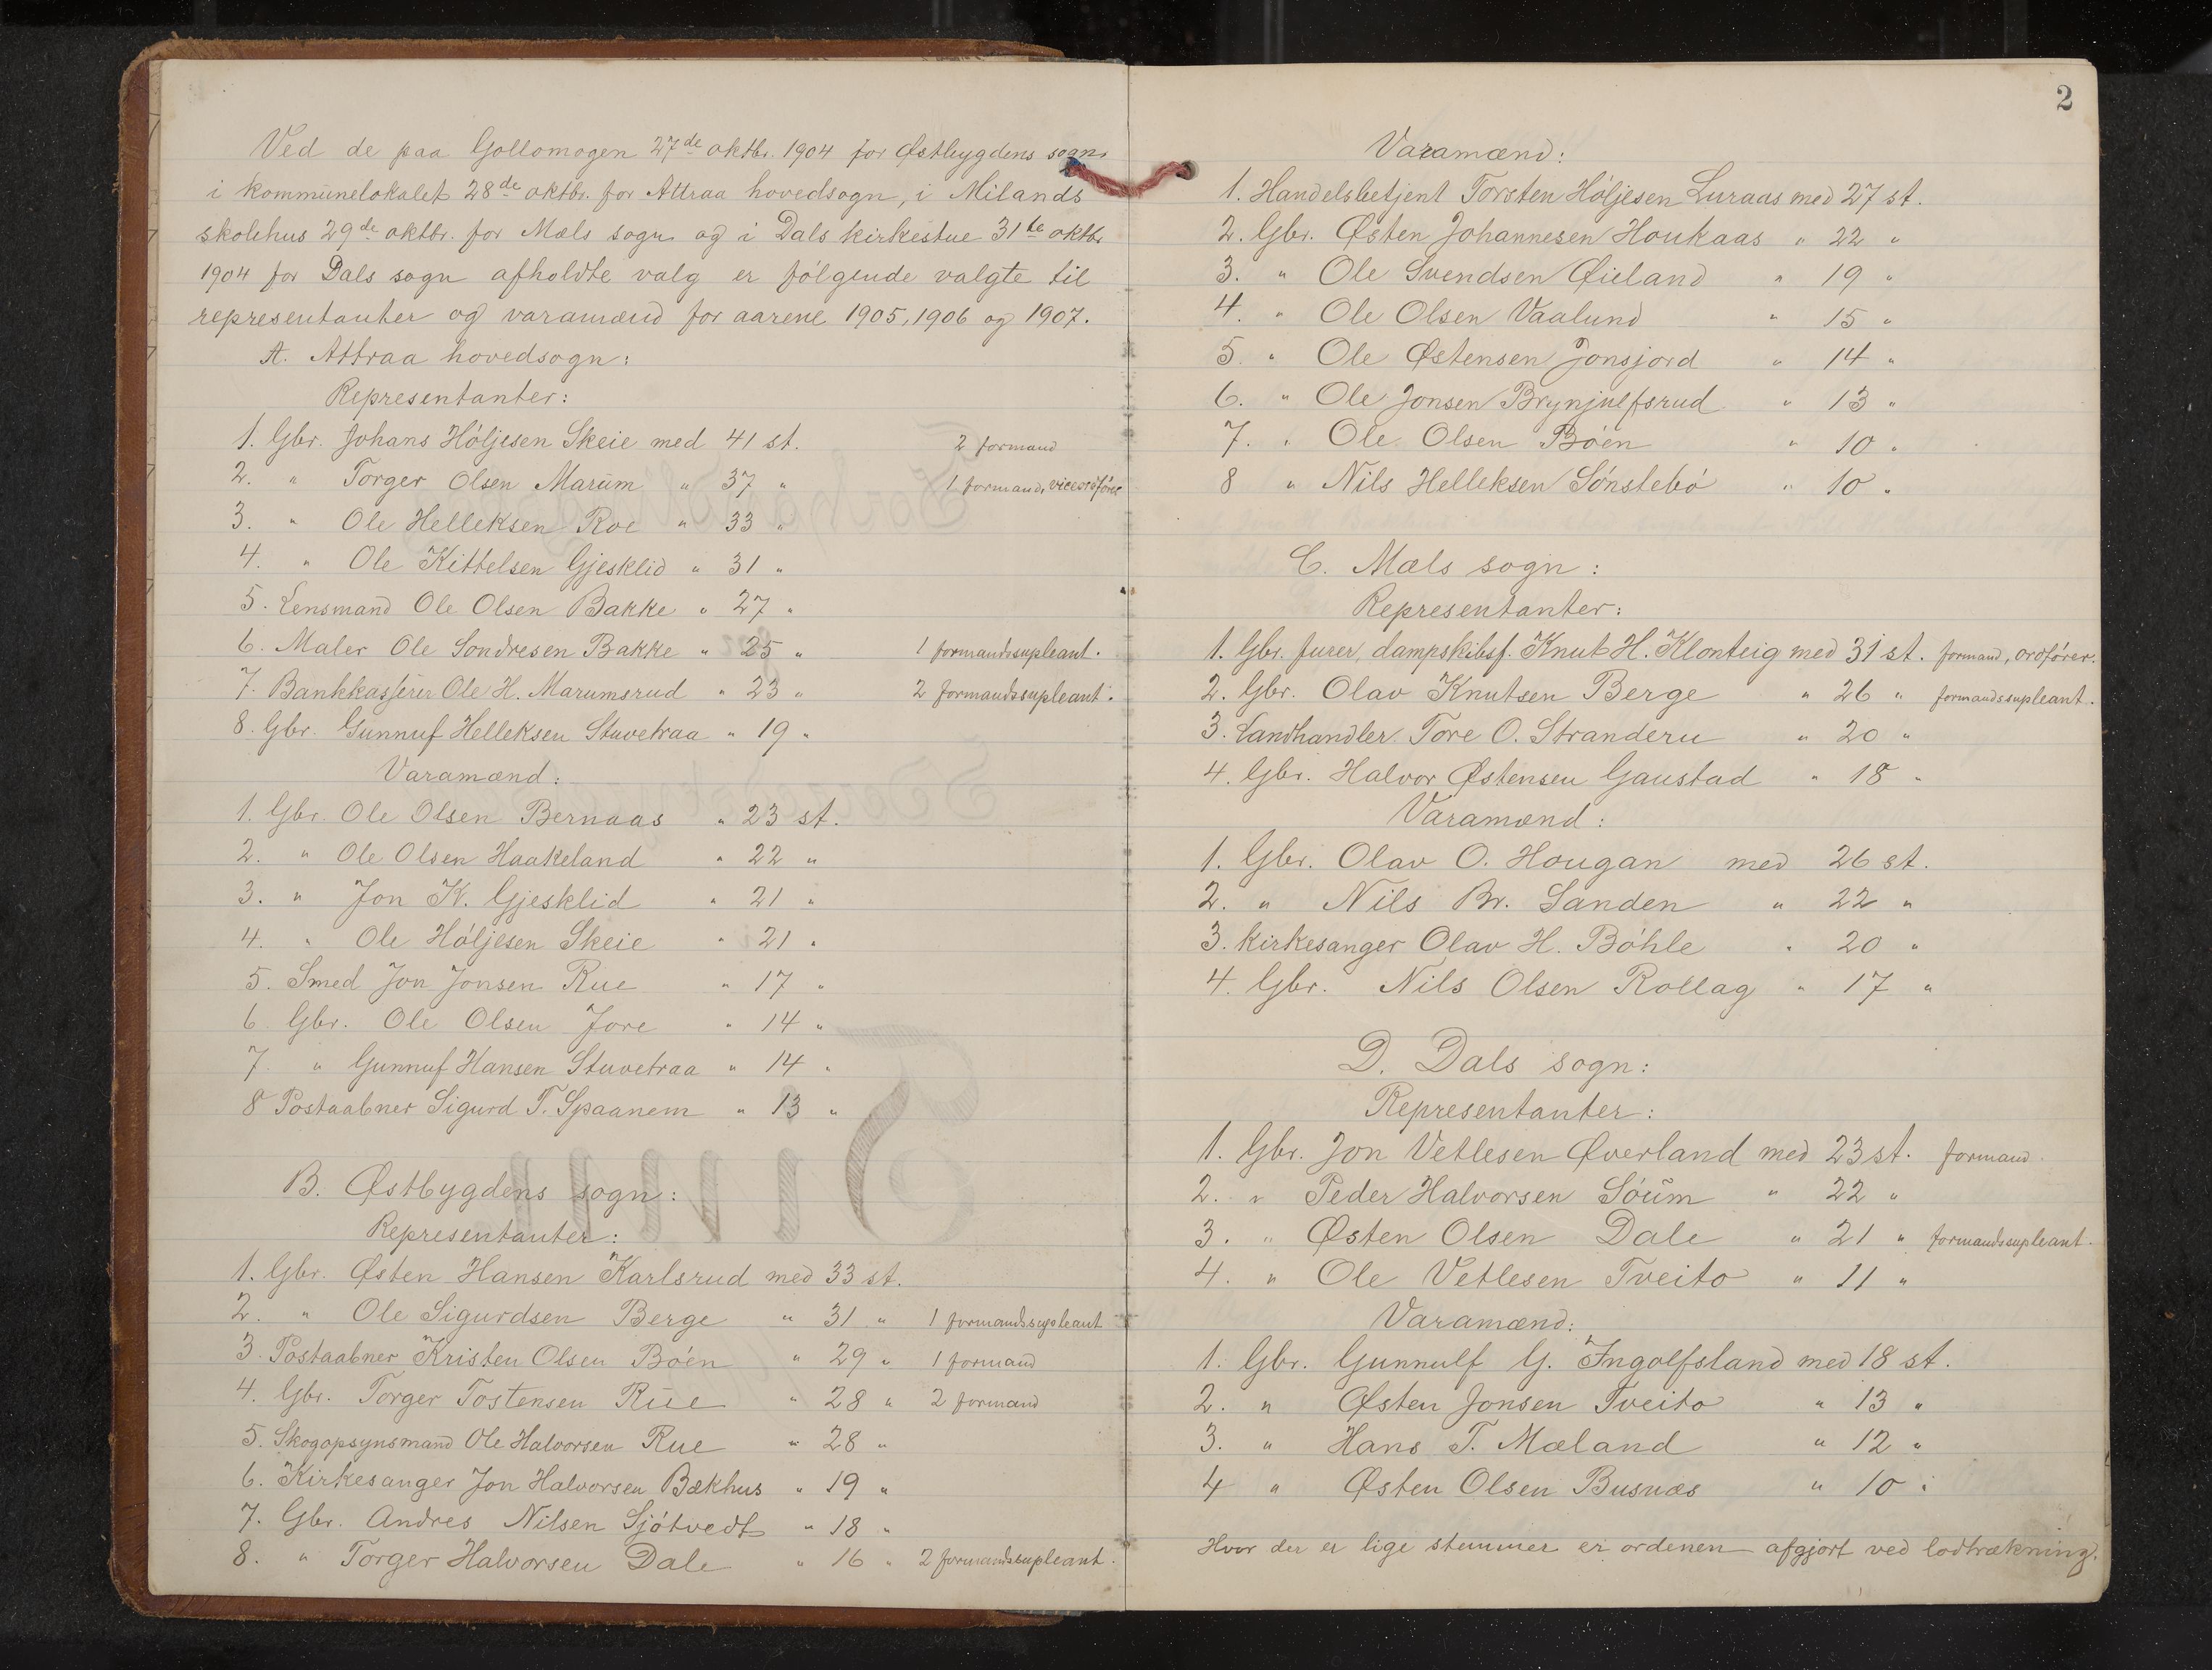 Ved de paa Gollomogen 27de oktbr. 1904 for Østbygdens sogn,
i kommunelokalet 28de oktbr. for Attraa hovedsogn, i Milands
skolehus 29de oktbr. for Mæls sogn og i Dals kirkestue 31te oktbr.
1904 for Dals sogn afholdte valg er følgende valgte til
representanter og varamænd for aarene 1905, 1906 og 1907.
A. Attraa hovedsogn:
Representanter:
1. Gbr. Johans Høljesen Skeie med 41 st. 2 formand
2. " Torger Olsen Marum " 37 " 1 formand, viceordfører
3. " Ole Helleksen Roe " 33 "
4. " Ole Kittelsen Gjesklid " 31 "
5. Lensmand Ole Olsen Bakke " 27 "
6. Maler Ole Sondresen Bakke " 25 " 1 formandssupleant.
7. Bankkasserer Ole H. Marumsrud " 23 " 2 formandssupleant.
8. Gbr. Gunnuf Helleksen Stuvetraa " 19 "
Varamænd:
1. Gbr. Ole Olsen Bernaas " 23 st.
2. " Ole Olsen Haakeland " 22 "
3. " Jon K. Gjesklid " 21 "
4. " Ole Høljesen Skeie " 21 "
5. Smed Jon Jonsen Rue " 17 "
6. Gbr. Ole Olsen Jore " 14 "
7. " Gunnuf Hansen Stuvetraa " 14 "
8 Postaabner Sigurd T. Spaanem " 13 "
B. Østbygdens sogn:
Representanter:
1. Gbr. Østen Hansen Karlsrud med 33 st.
2. " Ole Sigurdsen Berge " 31 " 1 formandssupleant
3. Postaabner Kristen Olsen Bøen " 29 " 1 formand
4. Gbr. Torger Tostensen Rue " 28 " 2 formand
5. Skogopsynsmand Ole Halvorsen Rue " 28 "
6. Kirkesanger Jon Halvorsen Bækhus " 19 "
7. Gbr. Andres Nilsen Sjøtvedt " 18 "
8. " Torger Halvorsen Dale " 16 " 2 formandssupleant.
2
Varamænd:
1. Handelsbetjent Torsten Høljesen Luraas med 27 st.
2. Gbr. Østen Johannesen Houkaas " 22 "
3. " Ole Svendsen Øieland " 19 "
4. " Ole Olsen Vaalund " 15 "
5. " Ole Østensen Jonsjord " 14 "
6. " Ole Jonsen Brynjulfsrud " 13 "
7. " Ole Olsen Bøen " 10 "
8 " Nils Helleksen Sønstebø " 10 "
C. Mæls sogn:
Representanter:
1. Gbr. furer, dampskibsf. Knut H. Klonteig med 31 st. formand, ordfører.
2. Gbr. Olav Knutsen Berge " 26 " formandssupleant.
3. Landhandler Tore O. Strandern " 20 "
4. Gbr. Halvor Østensen Gaustad " 18 "
Varamænd:
1. Gbr. Olav O. Hougan med 26 st.
2. " Nils Br. Sanden " 22 "
3. Kirkesanger Olav H. Bøhle " 20 "
4. Gbr. Nils Olsen Rollag " 17 "
D. Dals sogn:
Representanter:
1. Gbr. Jon Vetlesen Øverland med 23 st. formand
2. " Peder Halvorsen Søum " 22 "
3. " Østen Olsen Dale " 21 " formandssupleant.
4. " Ole Vetlesen Tveito " 11 "
Varamænd:
1. Gbr. Gunnulf G. Ingolfsland med 18 st.
2. " Østen Jonsen Tveito " 13 "
3. " Hans T. Mæland " 12 "
4 " Østen Olsen Busnæs " 10 "
Hvor der er lige stemmer er ordenen afgjort ved lodtrækning.